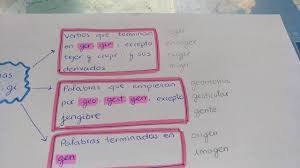 Verbos que terminan
en ger, gir, excepto
tejer y crujir y sus
derivados
coger
geometría
Palabras que empiezan
por geo gest gen, excepto
jengibre
gesticular
gente
Palabras terminadas en
gen
origen
imagen